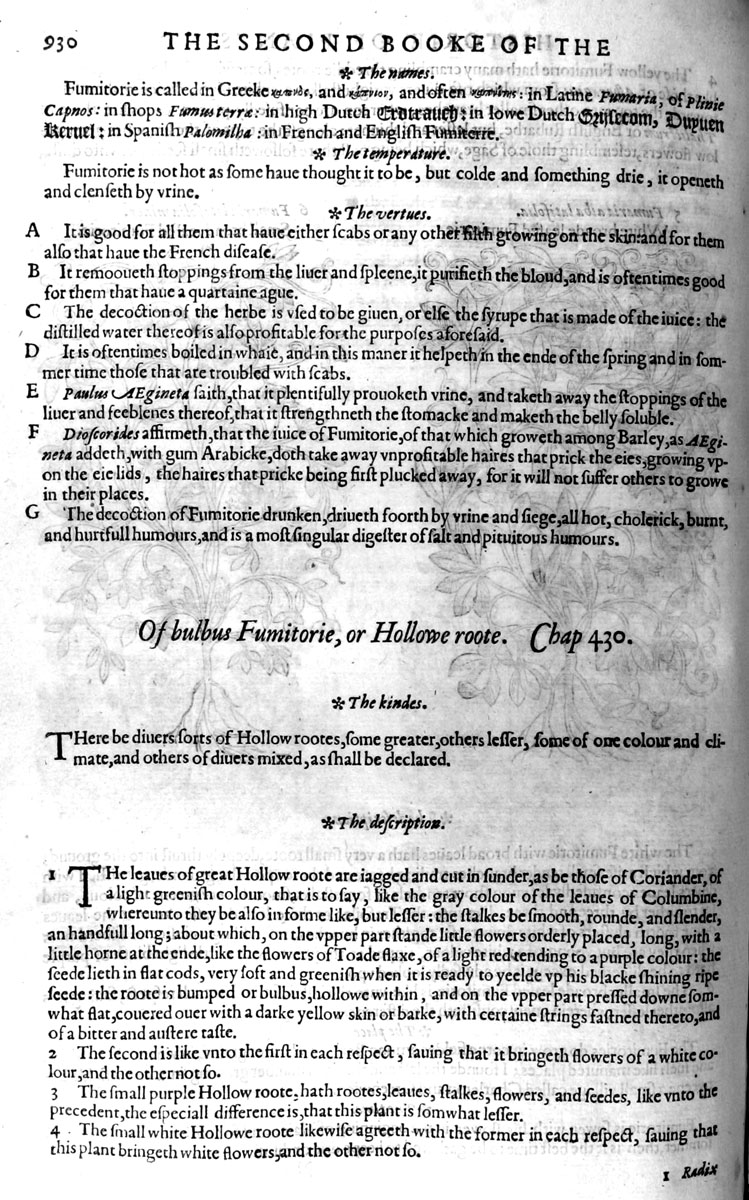 930 THE SECOND BOOKE OF THE
✻ The names.
Fumitorie is called in Greeke καπνὸς, and κάπνιον, and often : in Latine Fumaria, of Plinie
Capnos: in shops Fumus terræ: in high Dutch Erdtrauch: in lowe Dutch Grijsecom, Duyuen
Keruel: in Spanish Palomilha: in French and English Fumiterre.
✻ The temperature.
Fumitorie is not hot as some haue thought it to be, but colde and something drie, it openeth
and clenseth by vrine.
✻ The vertues.
A It is good for all them that haue either scabs or any other filth growing on the skin: and for them
also that haue the French disease.
B It remooueth stoppings from the liuer and spleene, it purifieth the bloud, and is oftentimes good
for them that haue a quartaine ague.
C The decoction of the herbe is vsed to be giuen, or else the syrupe that is made of the iuice: the
distilled water thereof is also profitable for the purposes aforesaid.
D It is oftentimes boiled in whaie, and in this maner it helpeth in the ende of the spring and in som-
mer time those that are troubled with scabs.
E Paulus AEgineta saith, that it plentifully prouoketh vrine, and taketh away the stoppings of the
liuer and feeblenes thereof, that it strengthneth the stomacke and maketh the belly soluble.
F Dioscorides affirmeth, that the iuice of Fumitorie, of that which groweth among Barley, as AEgi-
neta addeth, with gum Arabicke, doth take away vnprofitable haires that prick the eies, growing vp-
on the eie lids, the haires that pricke being first plucked away, for it will not suffer others to growe
in their places.
G The decoction of Fumitorie drunken, driueth foorth by vrine and siege, all hot, cholerick, burnt,
and hurtfull humours, and is a most singular digester of salt and pituitous humours.
Of bulbus Fumitorie, or Hollowe roote. Chap 430.
✻ The kindes.
THere be diuers sorts of Hollow rootes, some greater, others lesser, some of one colour and cli-
mate, and others of diuers mixed, as shall be declared.
✻ The description.
1 THe leaues of great Hollow roote are iagged and cut in sunder, as be those of Coriander, of
a light greenish colour, that is to say, like the gray colour of the leaues of Columbine,
whereunto they be also in forme like, but lesser: the stalkes be smooth, rounde, and slender,
an handfull long; about which, on the vpper part stande little flowers orderly placed, long, with a
little horne at the ende, like the flowers of Toade flaxe, of a light red tending to a purple colour: the
seede lieth in flat cods, very soft and greenish when it is ready to yeelde vp his blacke shining ripe
seede: the root is bumped or bulbus, hollowe within, and on the vpper part pressed downe som-
what flat, couered ouer with a darke yellow skin or barke, with certaine strings fastned thereto, and
of a bitter and austere taste.
2 The second is like vnto the first in each respect, sauing that it bringeth flowers of a white co-
lour, and the other not so.
3 The small purple Hollow roote, hath rootes, leaues, stalkes, flowers, and seedes, like vnto the
precedent, the especiall difference is, that this plant is somwhat lesser.
4 The small white Hollowe roote likewise agreeth with the former in each respect, sauing that
this plant bringeth white flowers, and the other not so.
1 Radix